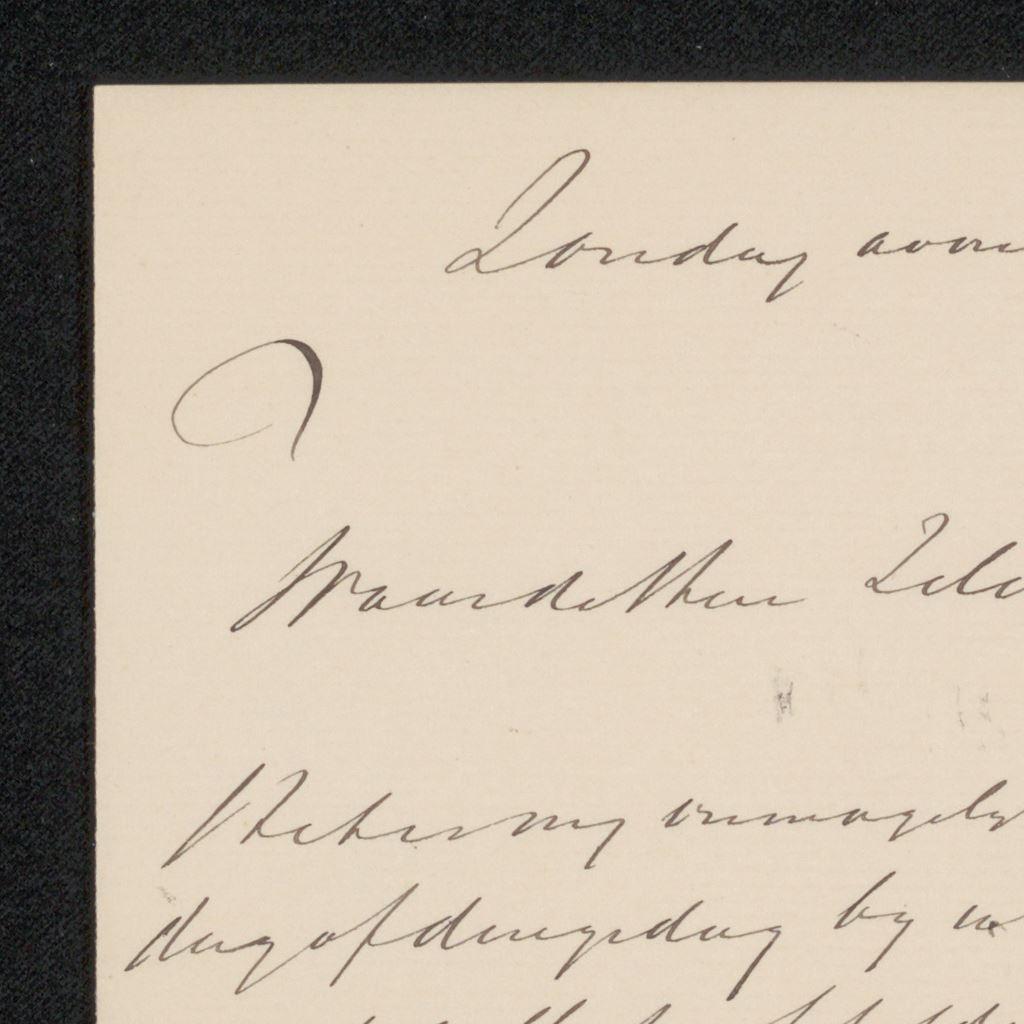 Zondag avon
Waarde Heer Zilc
Het is my onmogely
dag of dingsdag by u